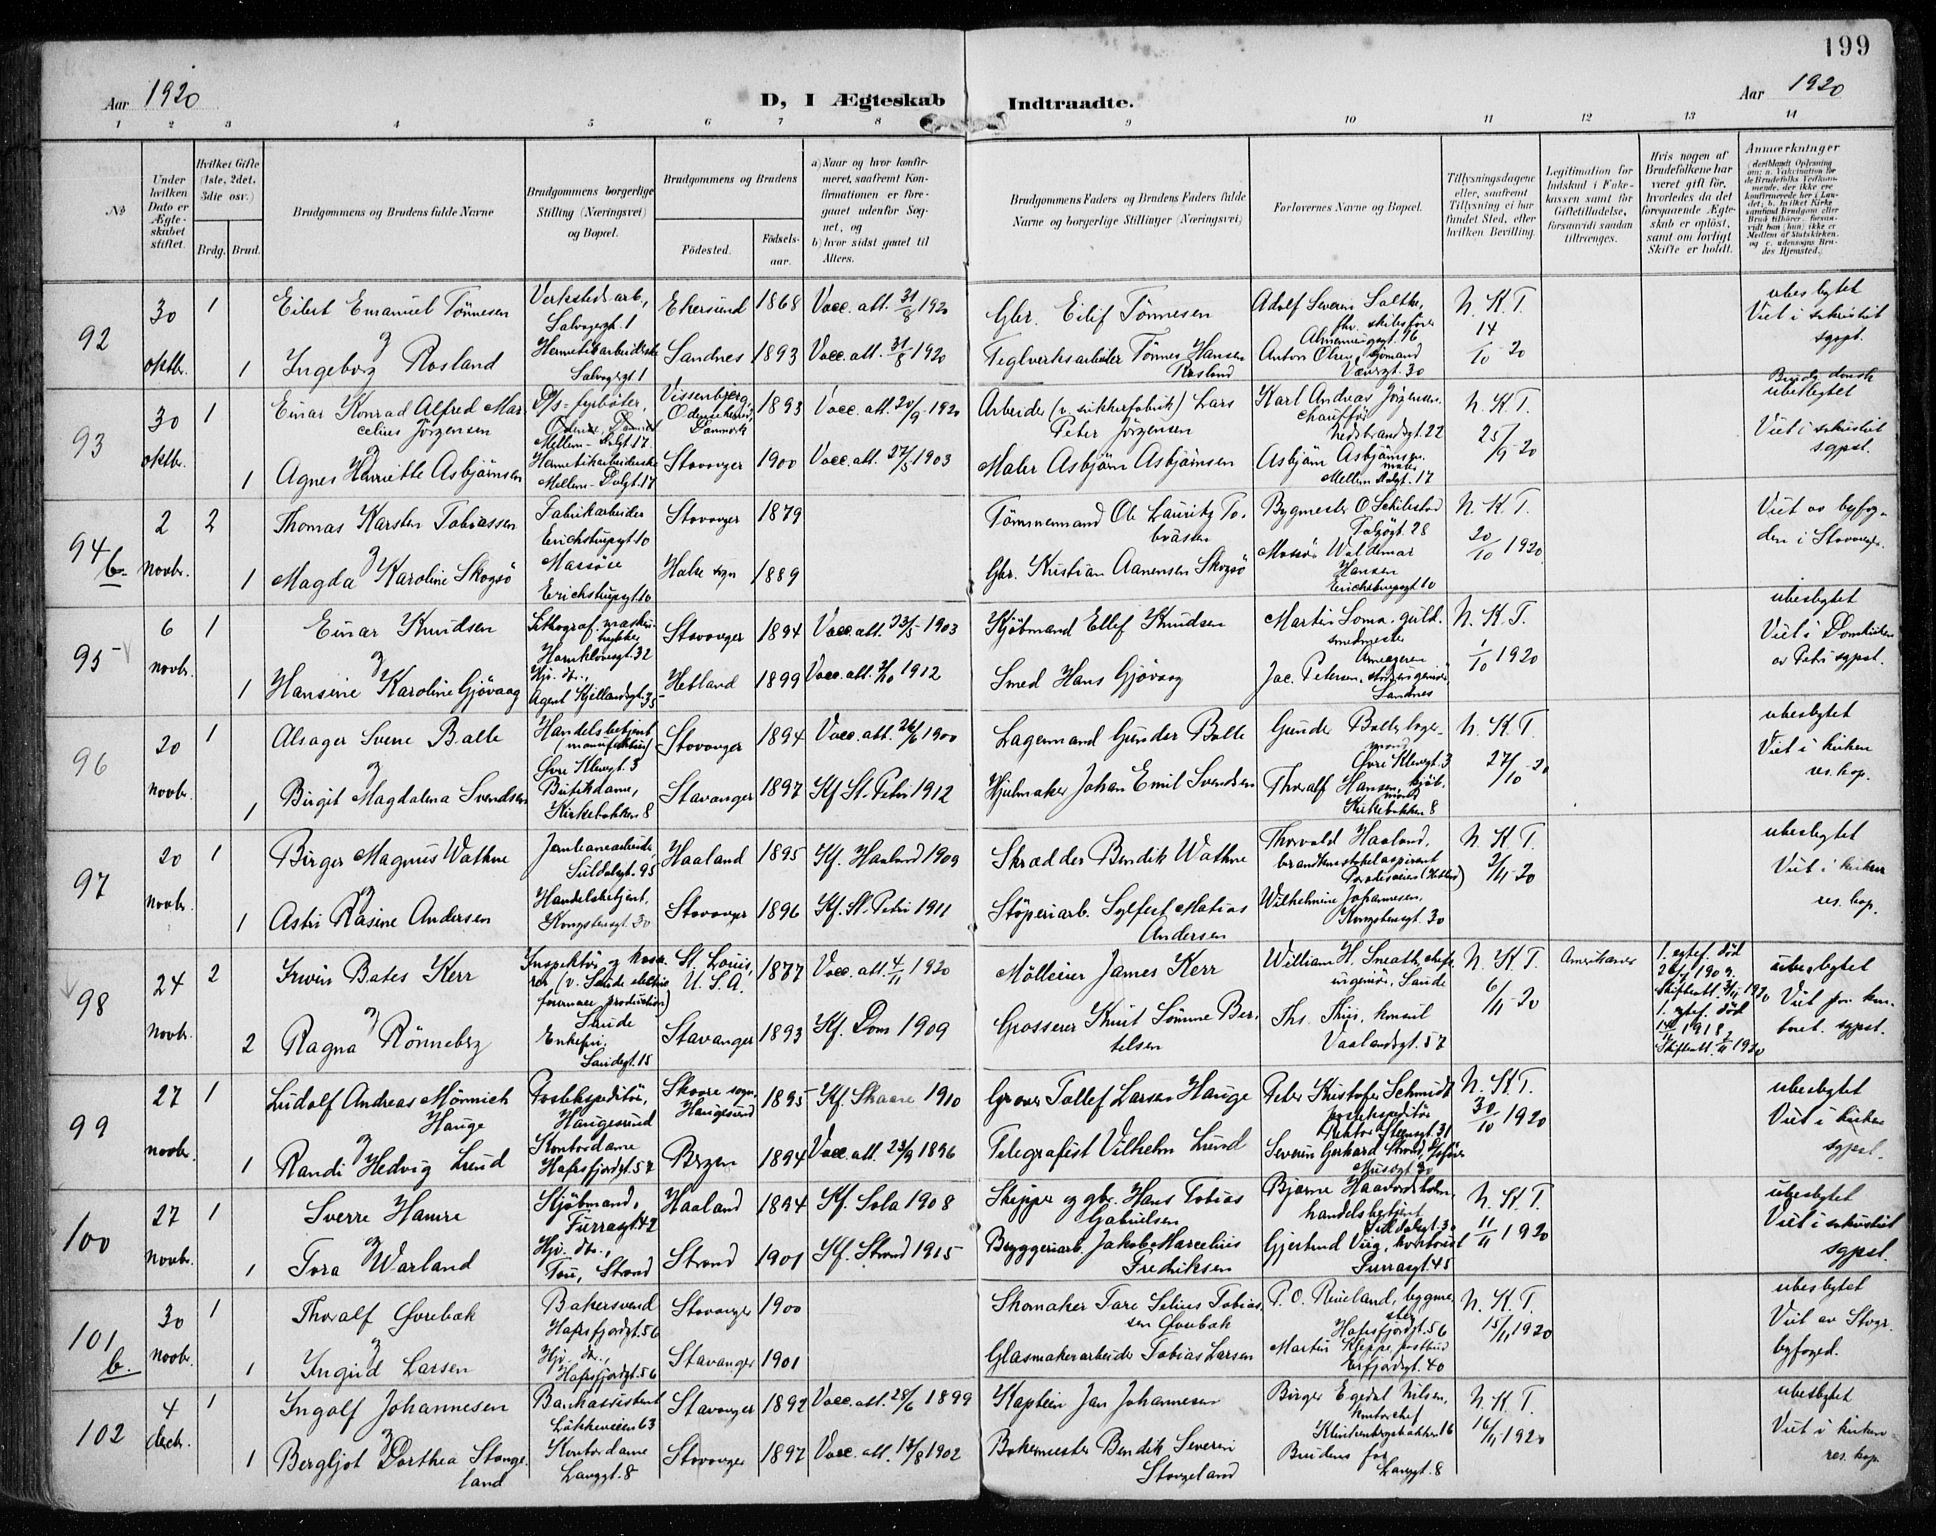 199
Aar 1920
D, I Ægteskab
Indtraadte.
Aar 1920
1 2 3 4 5 6 7 8 9 10 11 12 13 14
No
Under hvilken Dato er Ægteskabet stiftet.
Hvilket Gifte (1ste, 2det, 3die osv.)
Brdg. Brud.
Brudgommens og Brudens fulde Navne
Brudgommens borgerlige Stilling (Næringsvei) og Bopæl.
Brudgommens og Brudens
Fødested. Fødselsaar.
a) Naar og hvor konfirmeret, saafremt Konfirmationen er foregaaet udenfor Sognet, og
b) hvor sidst gaaet til Alters.
Brudgommens Faders og Brudens Faders fulde Navne og borgerlige Stillinger (Næringsvei)
Forlovernes Navne og Bopæl.
Tillysningsdagene eller, saafremt Tillysning ei har fundet Sted, efter hvilken Bevilling.
Legitimation for Indskud i Enkekassen samt for Giftetilladelse, forsaavidt saadan tiltrænges.
Hvis nogen af Brudefolkene har været gift før, hvorledes da det foregaaende Ægteskab er opløst, samt om lovligt Skifte er holdt.
Anmærkninger
92
30 1 Eilert Emanuel Tønnesen Verkstedsarb., Ekersund 1868 Vacc. att. 31/8 1920 Gbr. Eilif Tønnesen Adolf Severin N. K. T. ubeslygtet
Salvagergt. 1 fhv. skibsfører 14/10 20 Viet i sakristiet
oktbr. og Almenningsgt. 16 sgpst.
1 Ingeborg Rosland Hermetikarbeiderske Sandnes 1893 Vacc. att. 31/8 1920 Teglverksarbeider Tønnes Hansen Rosland Anton Olsen, sjømand
Salvagergt. 1
93
30 1 Einar Konrad Alfred Marcelius Jörgensen D/s-fyrbøter, Vissenbjerg, Odense herred, Danmark 1893 Vacc. att. 20/9 1920 Arbeider (v. sukkerfabrik) Lars Peter Jörgensen Karl Andreas Jörgensen, chauffør N. K. T. Brudg. dansk
25/9 20 ubeslygtet
oktbr. og Viet i sakristiet sgpst.
1 Agnes Henriette Asbjørnsen Hermetikarbeiderske Stavanger 1900 Vacc. att. 27/5 1903 Maler Asbjørn Asbjørnsen Asbjørn Asbjørnsen, maler
94 b.
2 2 Thomas Karsten Tobiassen Fabrikarbeider Stavanger 1879 Tømmermand Ole Lauritz Tobiassen Bygmester O Skibestad N. K. T. Viet av byfogden i Stavanger.
Erichstrupsgt. 10 20/10 1920
novbr. og
1 Magda Karoline Skogsö Massöse Halse sogn 1889 Gbr. Kristian Aanensen Skogsö Massör Waldemar Hansen
Erichstrupsgt. 10 Erichstrupsgt. 10
95
6 1 Einar Knudsen Lithograf. Stavanger 1894 Vacc. att. 23/5 1903 Kjøbmand Ellef Knudsen Martin Soma, guldsmedmester N. K. T. ubeslygtet
Haraldsgt. 32 1/10 1920 Viet i Domkirken av Petri sgpst.
novbr. og
1 Hansine Karoline Gjövaag Hjv. dtr., Hetland 1899 Vacc. att. 1912 Smed Hans Gjövaag Jac. Petersen,
Agent Kjellandsgt. 35 Sandnes
96
20 1 Alsager Sverre Balle Handelsbetjent (manufaktur) Stavanger 1894 Vacc. att. 26/6 1900 Lagermand Gunder Balle Gunder Balle, lagermand N. K. T. ubeslygtet
Øvre Klevegt. 3 Øvre Klevegt. 3 27/10 20 Viet i kirken
novbr. og res. kap.
1 Birgit Magdalena Svendsen Butikdame, Stavanger 1897 Kf. St. Petri 1912 Hjulmaker Johan Emil Svendsen Thoralf Hansen, kjøbmand
Kirkebakken 8 Kirkebakken 8
97
20 1 Birger Magnus Wathne Jernbanearbeider Haaland 1895 Kf. Haaland 1909 Skrædder Bendik Wathne Thorvald Haaland, N. K. T. ubeslygtet
Suldalsgt. 95 Paradisveien (Hetland) 2/11 20 Viet i kirken
novbr. og res. kap.
1 Astri Rasine Andersen Handelsbetjent, Stavanger 1896 Kf. St. Petri 1911 Støperiarb. Sylfest Matias Andersen Wilhelmine Johannesen,
Kongstensgt. 30 Kongstensgt. 30
98
24 2 Irwin Bates Kerr Inspektør og St. Louis, U. S. A. 1877 Vacc. att. 4/11 1920 Mölleier James Kerr William H. Sneath, N. K. T. Amerikaner 1. egtef. død ubeslygtet
(v. Sauda electric furnace production) Sauda ingeniør, Sauda 6/11 20 Viet paa
novbr. og 1. egtef. død sgpst.
2 Ragna Rönneberg Enkefru, Stavanger 1893 Kf. Dom 1909 Grosserer Knut Sömme Bertelsen Ths. Thiis, konsul 1918
Vaalandsgt. 57
99
27 1 Ludolf Andreas Mönnich Hauge Postekspeditör, Haugesund Skaare sogn, Haugesund 1895 Kf. Skaare 1910 Graver Tollef Larsen Hauge Peter Kristofer Schmidt postekspeditör N. K. T. ubeslygtet
30/10 1920 Viet i kirken
novbr. og sgpst.
1 Randi Hedvig Lund Kontordame Bergen 1894 Vacc. att. 23/9 1896 Telegrafist Vilhelm Lund Severin Gerhard
Hafrsfjordgt. 57
100
27 1 Sverre Hamre Kjøbmand, Haaland 1894 Kf. Sola 1908 Skipper og gbr. Hans Tobias Gabrielsen Bjarne Haavardsholm, handelsbetjent N. K. T. ubeslygtet
Furrasgt. 42 11/11 1920 Viet i sakristiet
novbr. og sgpst.
1 Tora Warland Hjv. dtr., Strand 1901 Kf. Strand 1915 Bryggeriarb. Jakob Marcelius Fredriksen Gjertrud Virg,
Tou, Strand Furrasgt. 45
101 b.
30 1 Thoralf Øvrebæk Bakersvend Stavanger 1900 Skomaker Tare Selius Tobiassen Øvrebæk P. O. Rueland, bygmester N. K. T. ubeslygtet
Hafrsfjordgt. 56 Hafrsfjordgt. 56 15/11 1920 Viet av Stvgr. byfoged.
novbr. og
1 Ingrid Larsen Hjv. dtr., Stavanger 1901 Glasmakerarbeider Tobias Larsen Martin Kleppe, postbud
Hafrsfjordgt. 56 Erfjordgt. 40
102
4 1 Ingolf Johannesen Bankassistent Stavanger 1892 Vacc. att. 28/6 1899 Kaptein Jan Johannesen Birger Egedal Nilsen, kontorchef N. K. T. ubeslygtet
Løkkeveien 63 16/11 1920 Viet i kirken
decbr. og res. kap.
1 Bergljot Dorthea Stangeland Kontordame Stavanger 1897 Vacc. att. 17/8 1902 Bakermester Bendik Severin Stangeland Brudens far
Langgt. 8 Langgt. 8